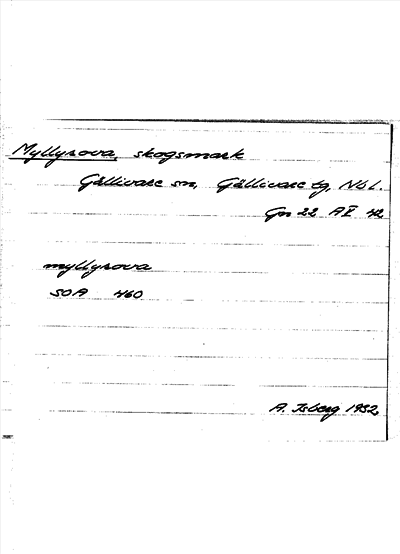 Myllyrova, skogsmark
Gällivare sn, Gällivare tg, Nbl.
Gn 22 A V 42
myllyrova
SOA 460
A. Isberg 1932